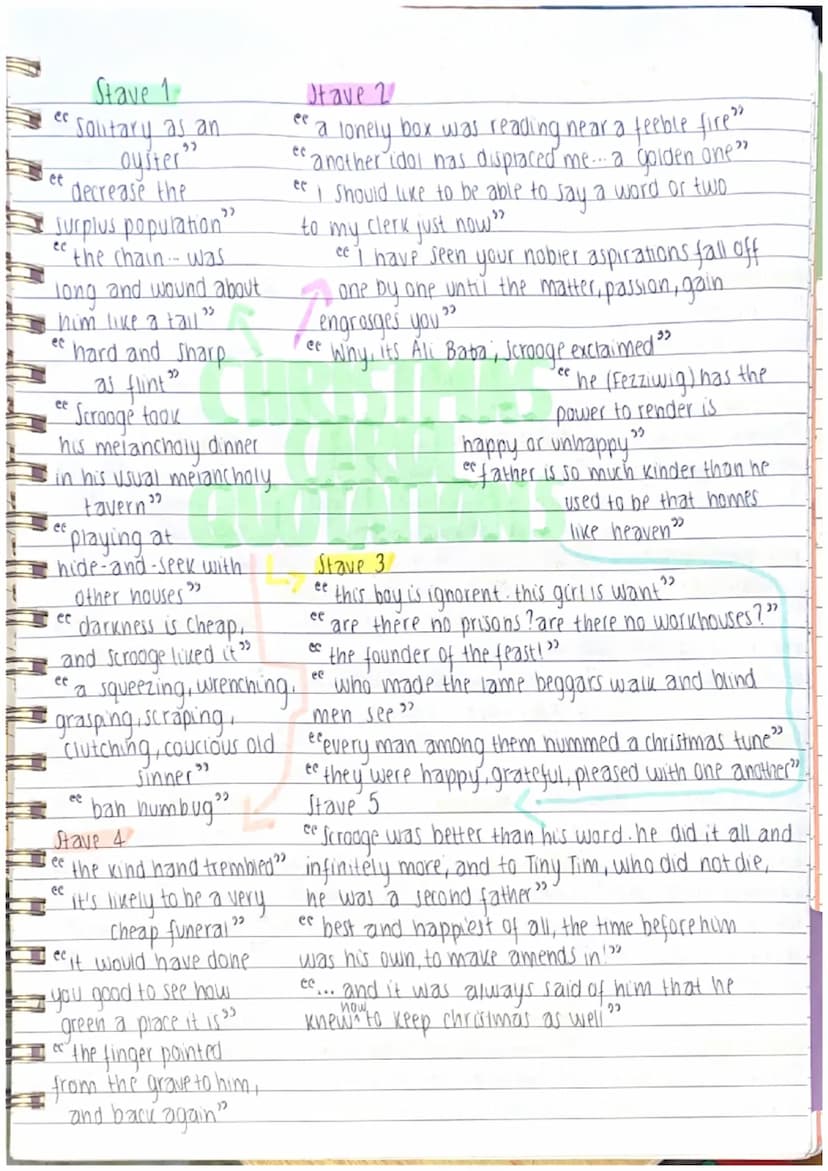 Stave 1
"solitary as an
oyster"
"decrease the
surplus population"
"the chain... was
long and wound about
him like a tail"
"hard and sharp
as flint"
"Scrooge took
his melancholy dinner
in his usual melancholy
tavern"
"playing at
hide-and-seek with
other houses"
"darkness is cheap,
and scrooge liked it"
"a squeezing, wrenching,
grasping, scraping,
clutching, coucious old
sinner"
"bah humbug"
Stave 2
"a lonely boy was reading near a feeble fire"
"another idol has displaced me... a golden one"
"I should like to be able to say a word or two
to my clerk just now"
"I have seen your nobler aspirations fall off
one by one until the matter, passion, gain
engrosges you"
"Why, its Ali Baba; Scrooge exclaimed"
"he (Fezziwig) has the
power to render is
happy or unhappy"
"father is so much kinder than he
used to be that homes
like heaven"
CHRISTMAS
CAROL
QUOTATIONS
Stave 3
"this boy is ignorent. this girl is want"
"are there no prisons? are there no workhouses?"
"the founder of the feast!"
"who made the lame beggars walk and blind
men see"
"every man among them hummed a christmas tune"
"they were happy, grateful, pleased with one another"
Stave 4
"the kind hand trembled"
"it's likely to be a very
cheap funeral"
"it would have done
you good to see how
green a place it is"
"the finger pointed
from the grave to him,
and back again"
Stave 5
"Scrooge was better than his word. he did it all and
infinitely more, and to Tiny Tim, who did not die,
he was a second father"
"best and happiest of all, the time before him
was his own, to make amends in!"
"... and it was always said of him that he
knew how to keep christmas as well"